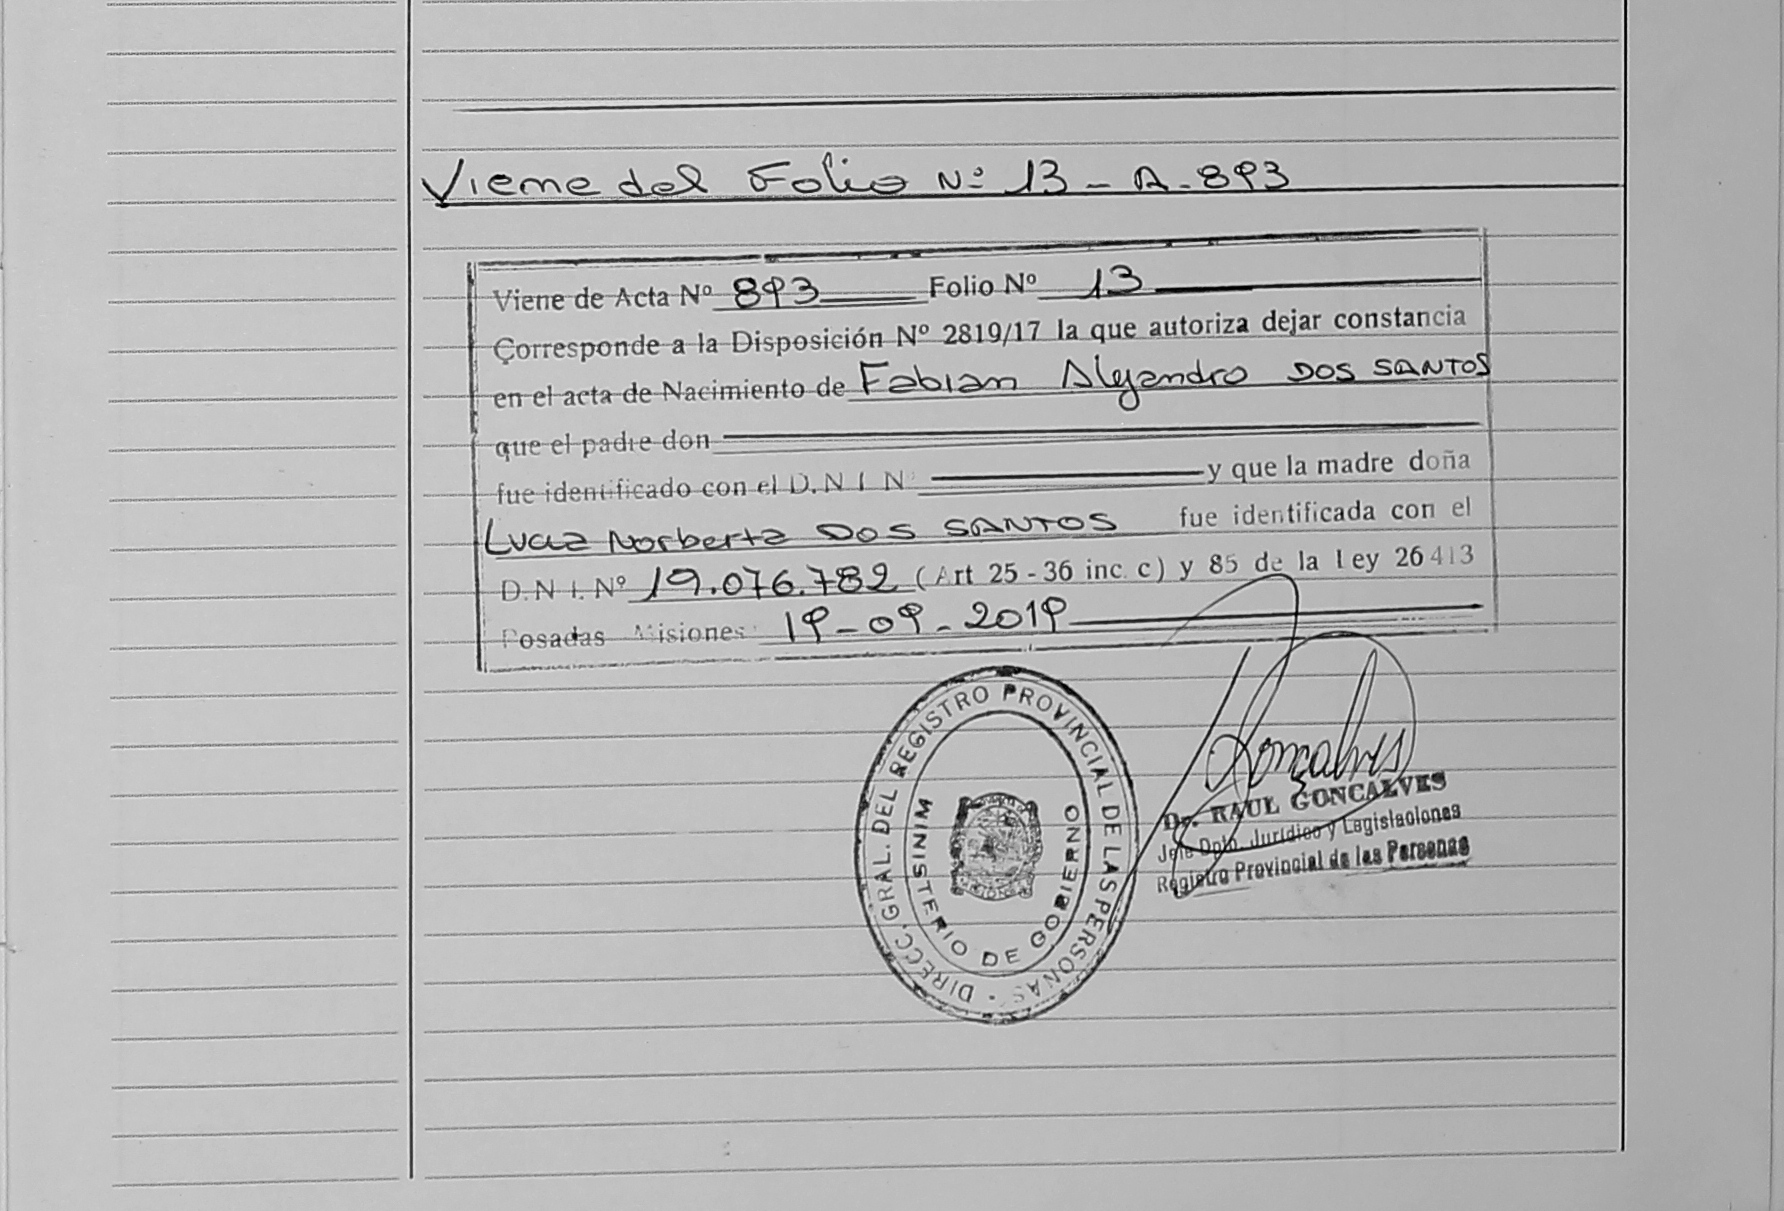 Viene del Folio Nº 13 - A - 893
Viene de Acta Nº 893 Folio Nº 13
Corresponde a la Disposición Nº 2819/17 la que autoriza dejar constancia
en el acta de Nacimiento de Fabian Alejandro DOS SANTOS
que el padre don
fue identificado con el D.N.I N y que la madre doña
Lucia Norberta DOS SANTOS fue identificada con el
D.N.I. Nº 19.076.782 (Art 25 - 36 inc. c) y 85 de la Ley 26413
Posadas Misiones 19-09-2019
DIRECC. GRAL. DEL REGISTRO PROVINCIAL DE LAS PERSONAS
MINISTERIO DE GOBIERNO
Gonçalves
Dr. RAUL GONCALVES
Jefe Dpto. Jurídico y Legislaciones
Registro Provincial de las Personas